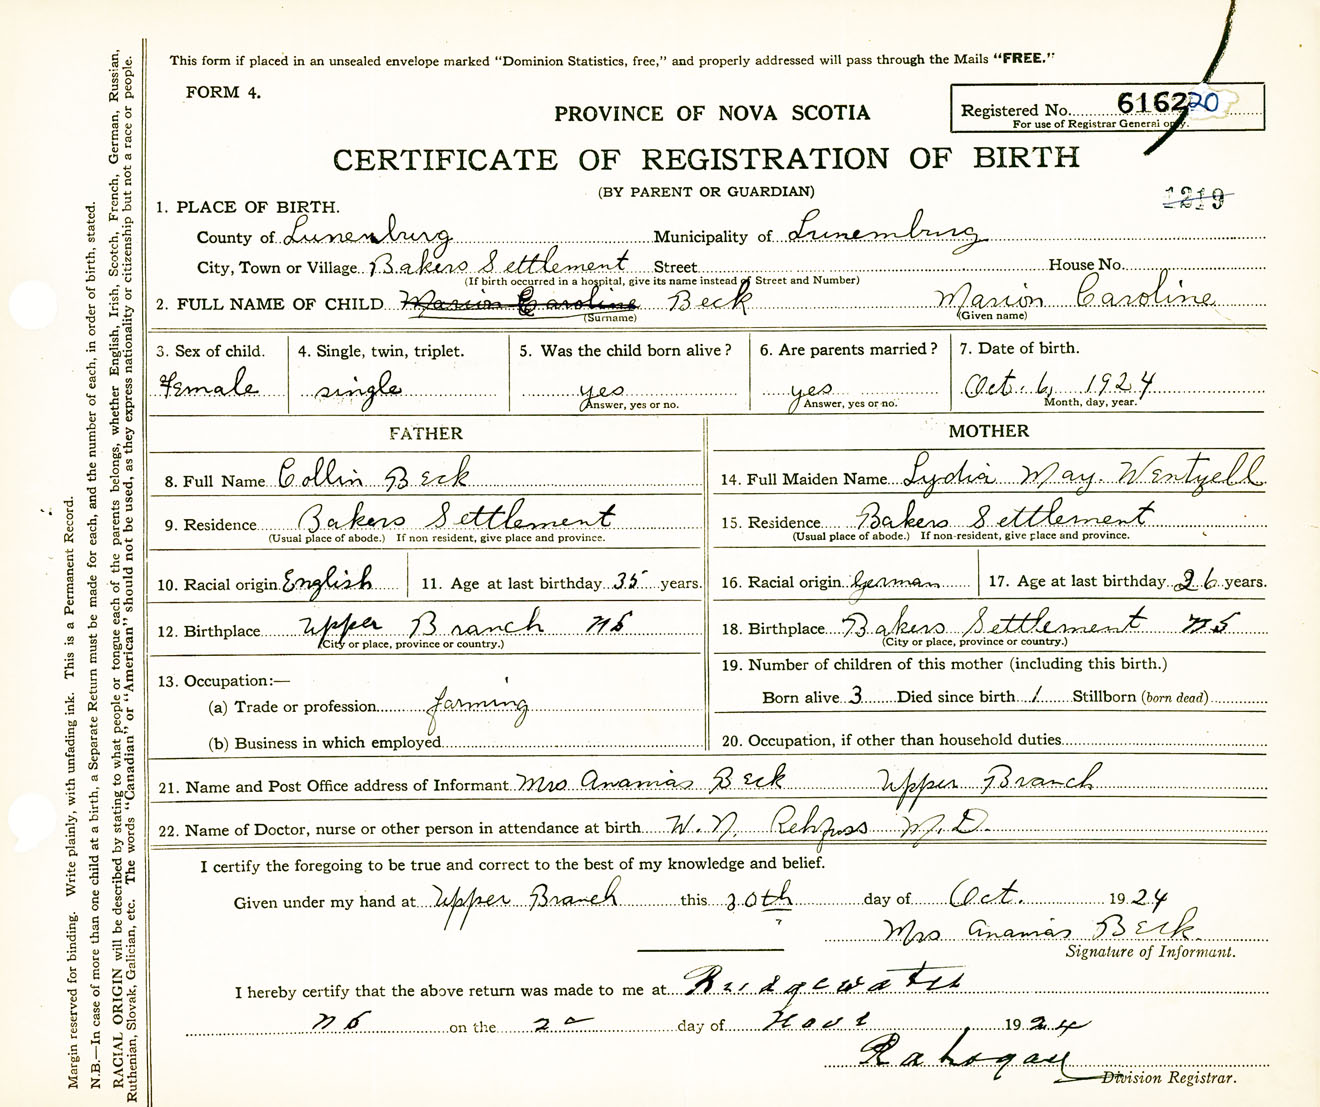 This form if placed in an unsealed envelope marked "Dominion Statistics, free," and properly addressed will pass through the Mails "FREE."
FORM 4.
PROVINCE OF NOVA SCOTIA
Registered No. 616220
For use of Registrar General only.
CERTIFICATE OF REGISTRATION OF BIRTH
(BY PARENT OR GUARDIAN)
1219
1. PLACE OF BIRTH.
County of Lunenburg Municipality of Lunemburg
City, Town or Village Bakers Settlement Street House No.
(If birth occurred in a hospital, give its name instead of Street and Number)
2. FULL NAME OF CHILD Marion Caroline Beck Marion Caroline
(Surname) (Given name)
3. Sex of child. 4. Single, twin, triplet. 5. Was the child born alive? 6. Are parents married? 7. Date of birth.
Female single yes yes Oct. 6, 1924
Answer, yes or no. Answer, yes or no. Month, day, year.
FATHER MOTHER
8. Full Name Collin Beck
9. Residence Bakers Settlement
(Usual place of abode.) If non resident, give place and province.
10. Racial origin English 11. Age at last birthday 35 years.
12. Birthplace Upper Branch NS
(City or place, province or country.)
13. Occupation:—
(a) Trade or profession farming
(b) Business in which employed
14. Full Maiden Name Lydia May. Wentzell
15. Residence Bakers Settlement
(Usual place of abode.) If non-resident, give place and province.
16. Racial origin German 17. Age at last birthday 26 years.
18. Birthplace Bakers Settlement NS
(City or place, province or country.)
19. Number of children of this mother (including this birth.)
Born alive 3 Died since birth 1 Stillborn (born dead)
20. Occupation, if other than household duties
21. Name and Post Office address of Informant Mrs Ananias Beck Upper Branch
22. Name of Doctor, nurse or other person in attendance at birth W. N. Rehfuss M.D.
I certify the foregoing to be true and correct to the best of my knowledge and belief.
Given under my hand at Upper Branch this 30th day of Oct. 1924
Mrs Ananias Beck
Signature of Informant.
I hereby certify that the above return was made to me at Bridgewater
NS on the 2 day of Nov 1924
Division Registrar.
Margin reserved for binding. Write plainly, with unfading ink. This is a Permanent Record.
N.B.—In case of more than one child at a birth, a Separate Return must be made for each, and the number of each, in order of birth, stated.
RACIAL ORIGIN will be described by stating to what people or tongue each of the parents belongs, whether English, Irish, Scotch, French, German, Russian,
Ruthenian, Slovak, Galician, etc. The words "Canadian" or "American" should not be used, as they express nationality or citizenship but not a race or people.